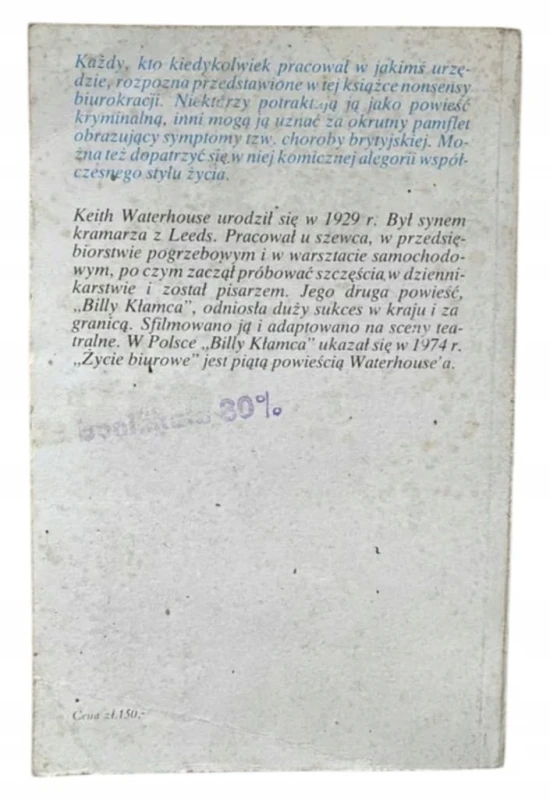 Każdy, kto kiedykolwiek pracował w jakimś urzę-
dzie, rozpozna przedstawione w tej książce nonsensy
biurokracji. Niektórzy potraktują ją jako powieść
kryminalną, inni mogą ją uznać za okrutny pamflet
obrazujący symptomy tzw. choroby brytyjskiej. Mo-
żna też dopatrzyć się w niej komicznej alegorii współ-
czesnego stylu życia.
Keith Waterhouse urodził się w 1929 r. Był synem
kramarza z Leeds. Pracował u szewca, w przedsię-
biorstwie pogrzebowym i w warsztacie samochodo-
wym, po czym zaczął próbować szczęścia w dzienni-
karstwie i został pisarzem. Jego druga powieść,
„Billy Kłamca”, odniosła duży sukces w kraju i za
granicą. Sfilmowano ją i adaptowano na sceny tea-
tralne. W Polsce „Billy Kłamca” ukazał się w 1974 r.
„Życie biurowe” jest piątą powieścią Waterhouse'a.
80%
Cena zł 150,-